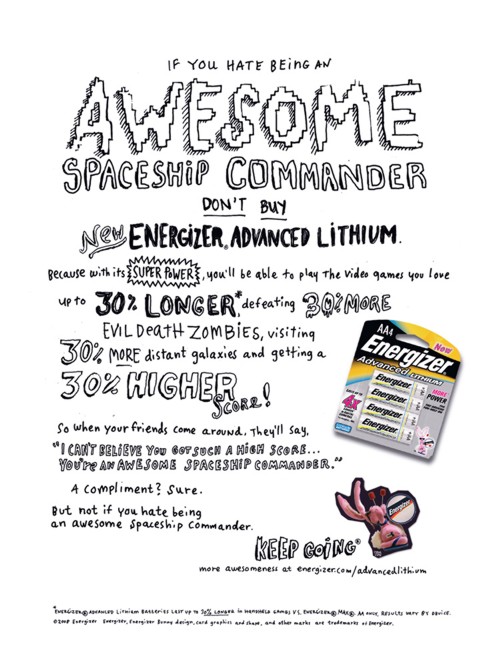 IF YOU HATE BEING AN
AWESOME
SPACESHIP COMMANDER
DON'T BUY
New ENERGIZER® ADVANCED LITHIUM.
Because with its SUPER POWER, you'll be able to play the video games you love
up to 30% LONGER,* defeating 30% MORE
EVIL DEATH ZOMBIES, visiting
30% MORE distant galaxies and getting a
30% HIGHER
SCORE!
So when your friends come around, they'll say,
"I CAN'T BELIEVE YOU GOT SUCH A HIGH SCORE...
YOU'RE AN AWESOME SPACESHIP COMMANDER."
A compliment? Sure.
But not if you hate being
an awesome spaceship commander.
AA4
New
Energizer
Advanced LITHIUM
Energizer
Energizer
Energizer
Energizer
4X
MORE
POWER
Energizer
KEEP GOING®
more awesomeness at energizer.com/advancedlithium
*ENERGIZER® ADVANCED Lithium Batteries Last up to 30% Longer in Handheld Games vs. ENERGIZER® MAX® AA only. RESULTS VARY BY device.
©2008 Energizer Energizer, Energizer Bunny design, card graphics and shape, and other marks are trademarks of Energizer.